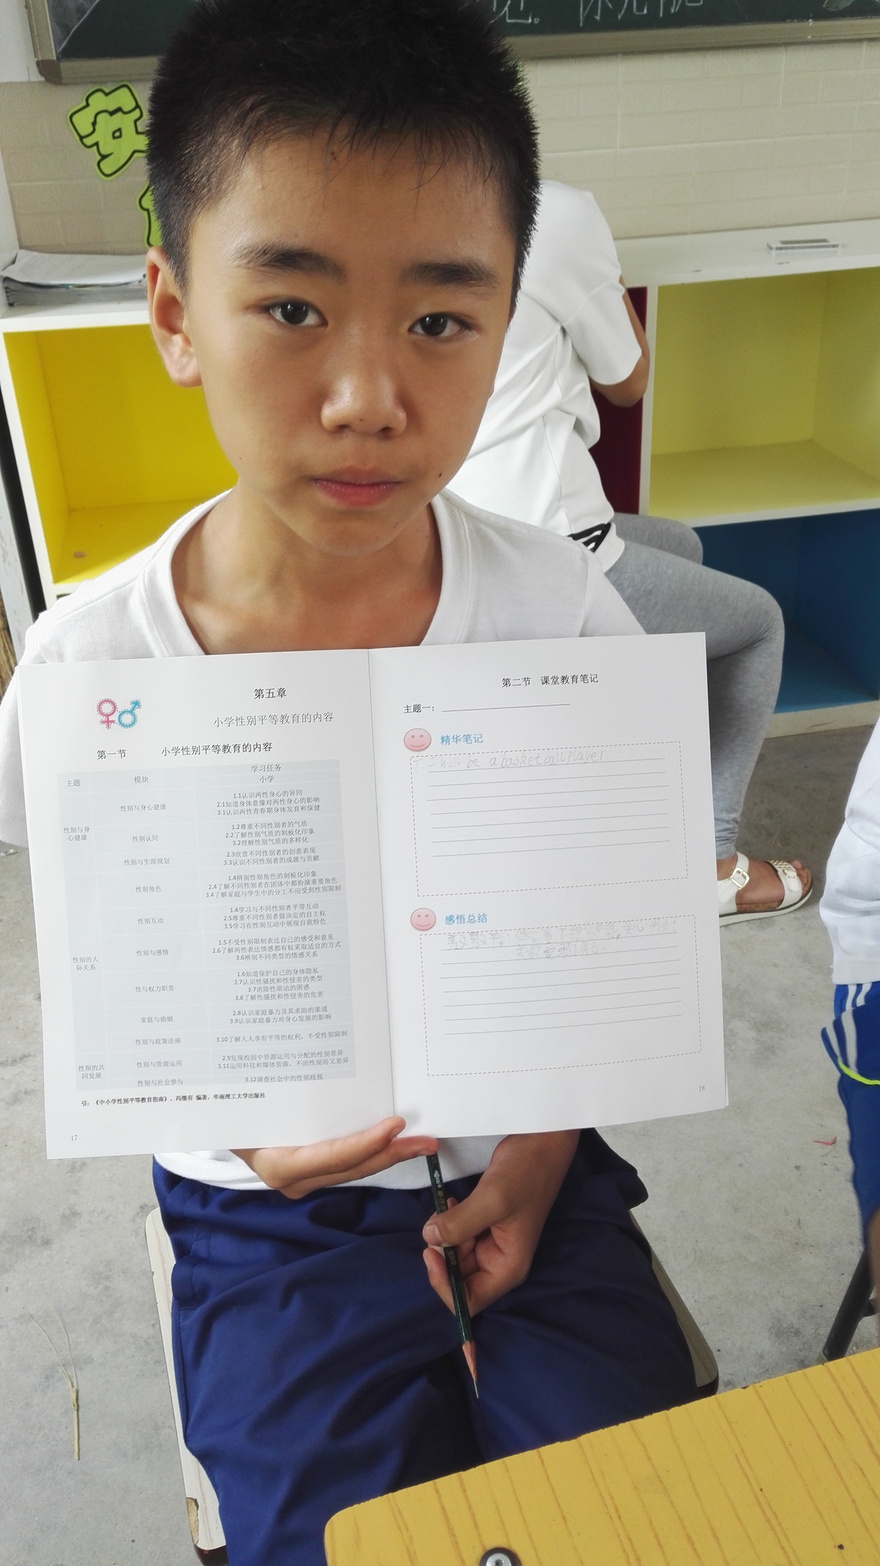 安
第五章
小学性别平等教育的内容
第一节 小学性别平等教育的内容
主题 模块 学习任务
小学
性别与身心健康
性别与身心健康
1.1认识两性身心的异同
2.1知道身体意像对两性身心的影响
3.1认识两性青春期身体发育和保健
性别认同
1.2尊重不同性别者的气质
2.2了解性别气质的刻板化印象
3.2理解性别气质的多样化
性别与生涯规划
2.3欣赏不同性别者的创意表现
3.3认识不同性别者的成就与贡献
性别角色
1.4辨别性别角色的刻板化印象
2.4了解不同性别者在团体中都扮演重要角色
3.4了解家庭与学生中的分工不应受到性别限制
性别的人际关系
性别互动
1.4学习与不同性别者平等互动
2.5尊重不同性别者做决定的自主权
3.5学习在性别互动中展现自我特色
性别与情感
1.5不受性别限制表达自己的感受和意见
2.6了解两性表达情感都有权采取适宜的方式
3.6辨别不同类型的情感关系
性与权力职责
1.6知道保护自己的身体隐私
2.7认识性骚扰和性侵害的类型
3.7消除性萌动的困惑
3.8了解性骚扰和性侵害的危害
家庭与婚姻
2.8认识家庭暴力及其求助的渠道
3.9认识家庭暴力对身心发展的影响
性别与政策法规
3.10了解人人享有平等的权利，不受性别限制
性别的共同发展
性别与资源运用
2.9发现校园中资源运用与分配的性别差异
3.11运用科技和媒体资源，不因性别而又差异
性别与社会参与
3.12调查社会中的性别歧视
引：《中小学性别平等教育指南》，冯继有 编著，华南理工大学出版社
17
第二节 课堂教育笔记
主题一：
精华笔记
will be a basketball player
感悟总结
18